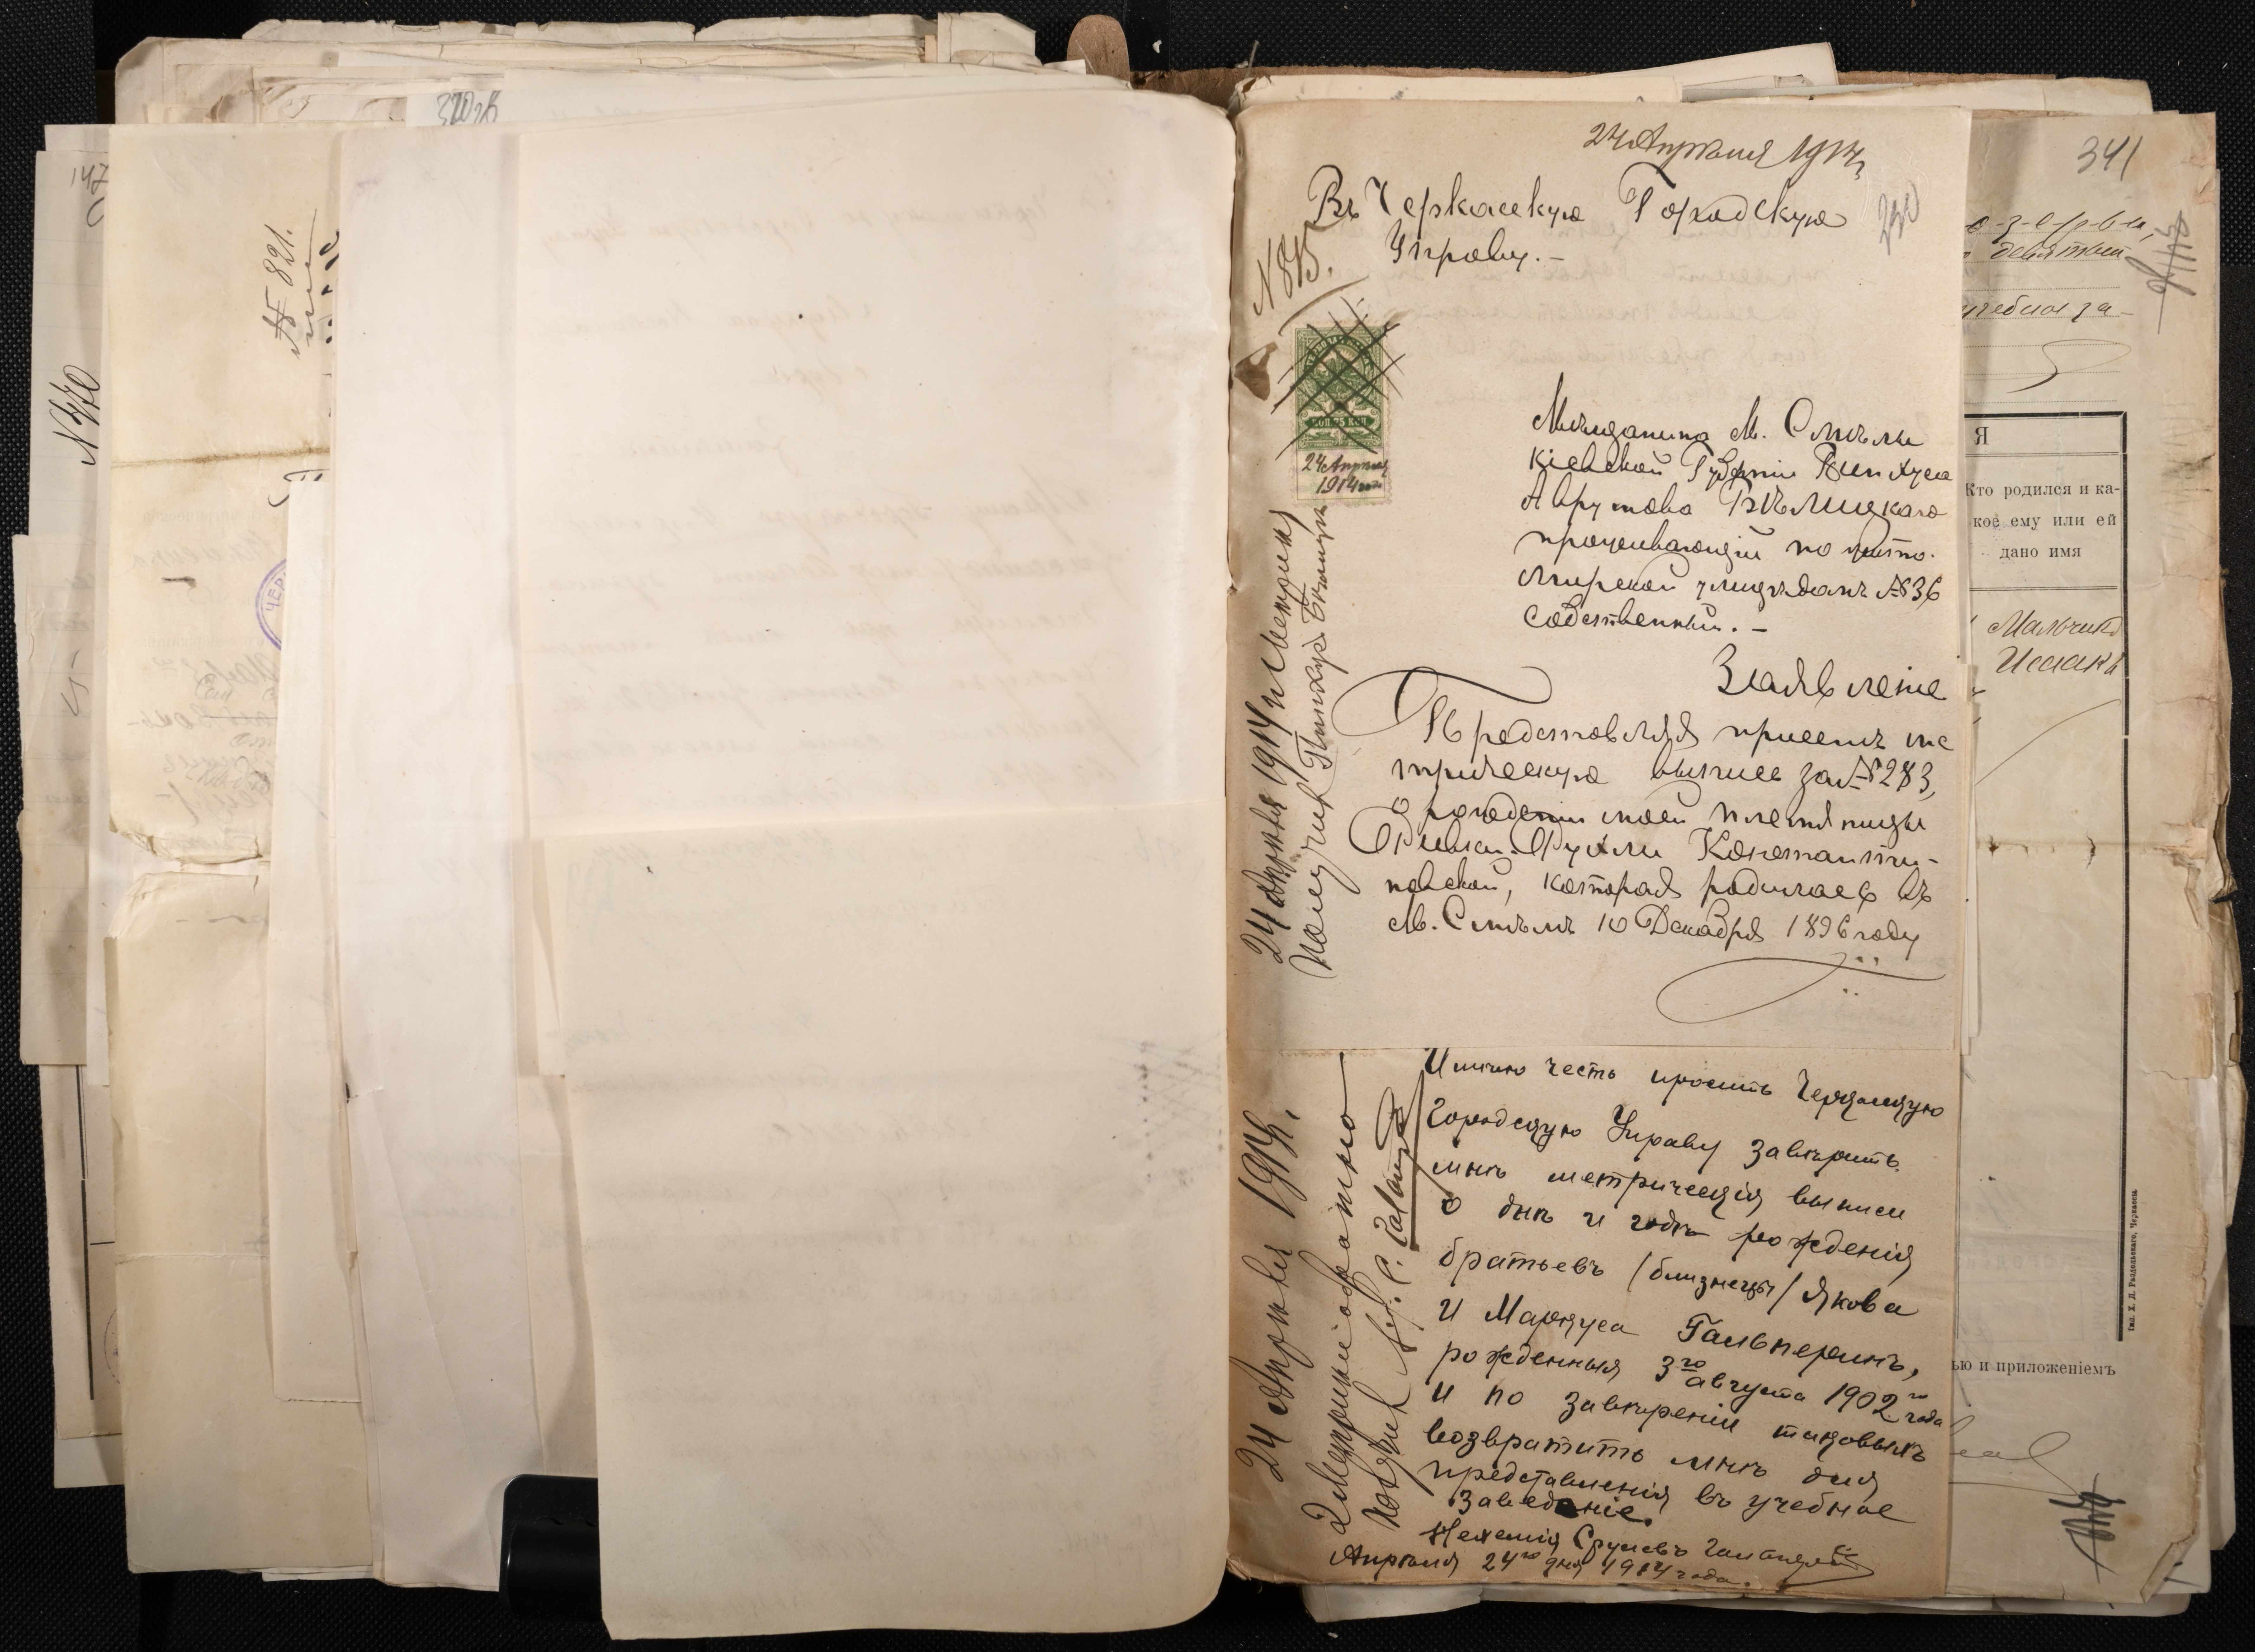 147
N 470
№ 821.
ЧЕР
24 Апрѣля 1914 г
Въ Черкасскую Городскую
Управу.-
N 815.
КОП. 75 КОП.
24 Апрѣля
1914 года
Мѣщанина М. Смѣлы
Кіевской Губерніи Пинхуса
Аврумова Бѣлицкаго
проживающій по Жито-
мирской улицѣ домъ №36
собственный.-
Заявленіе
Представляя присемъ ме
трическую выпись за №283,
о рожденіи моей племяницы
Ривки-Рухли Константи-
новской, которая родилась въ
М. Смѣлѣ 10 Декабря 1896 году
24 Апрѣля 1914 г Метрику
Получил Пинхус Бѣлицкий
Имѣю честь просить Черкасскую
Городскую Управу завѣрить
мнѣ метрическія выписи
о днѣ и годѣ рожденія
братьевъ /близнецы/ Якова
и Маркуса Гальперинъ,
рожденныя 3го августа 1902го года
и по завѣреніи таковыхъ
возвратить мнѣ для
представленія въ учебное
заведеніе.
Нехемія Срулевъ
Апрѣля 24го дня 1914 года.
24 Апрѣля 1914 г.
2 Метрики обратно
получил
341
девятый
учебное за-
Я
Кто родился и ка-
кое ему или ей
дано имя
Мальчикъ
Исаакъ
ью и приложеніемъ
Тип. Х. Д. Раздольскаго, Черкассы.